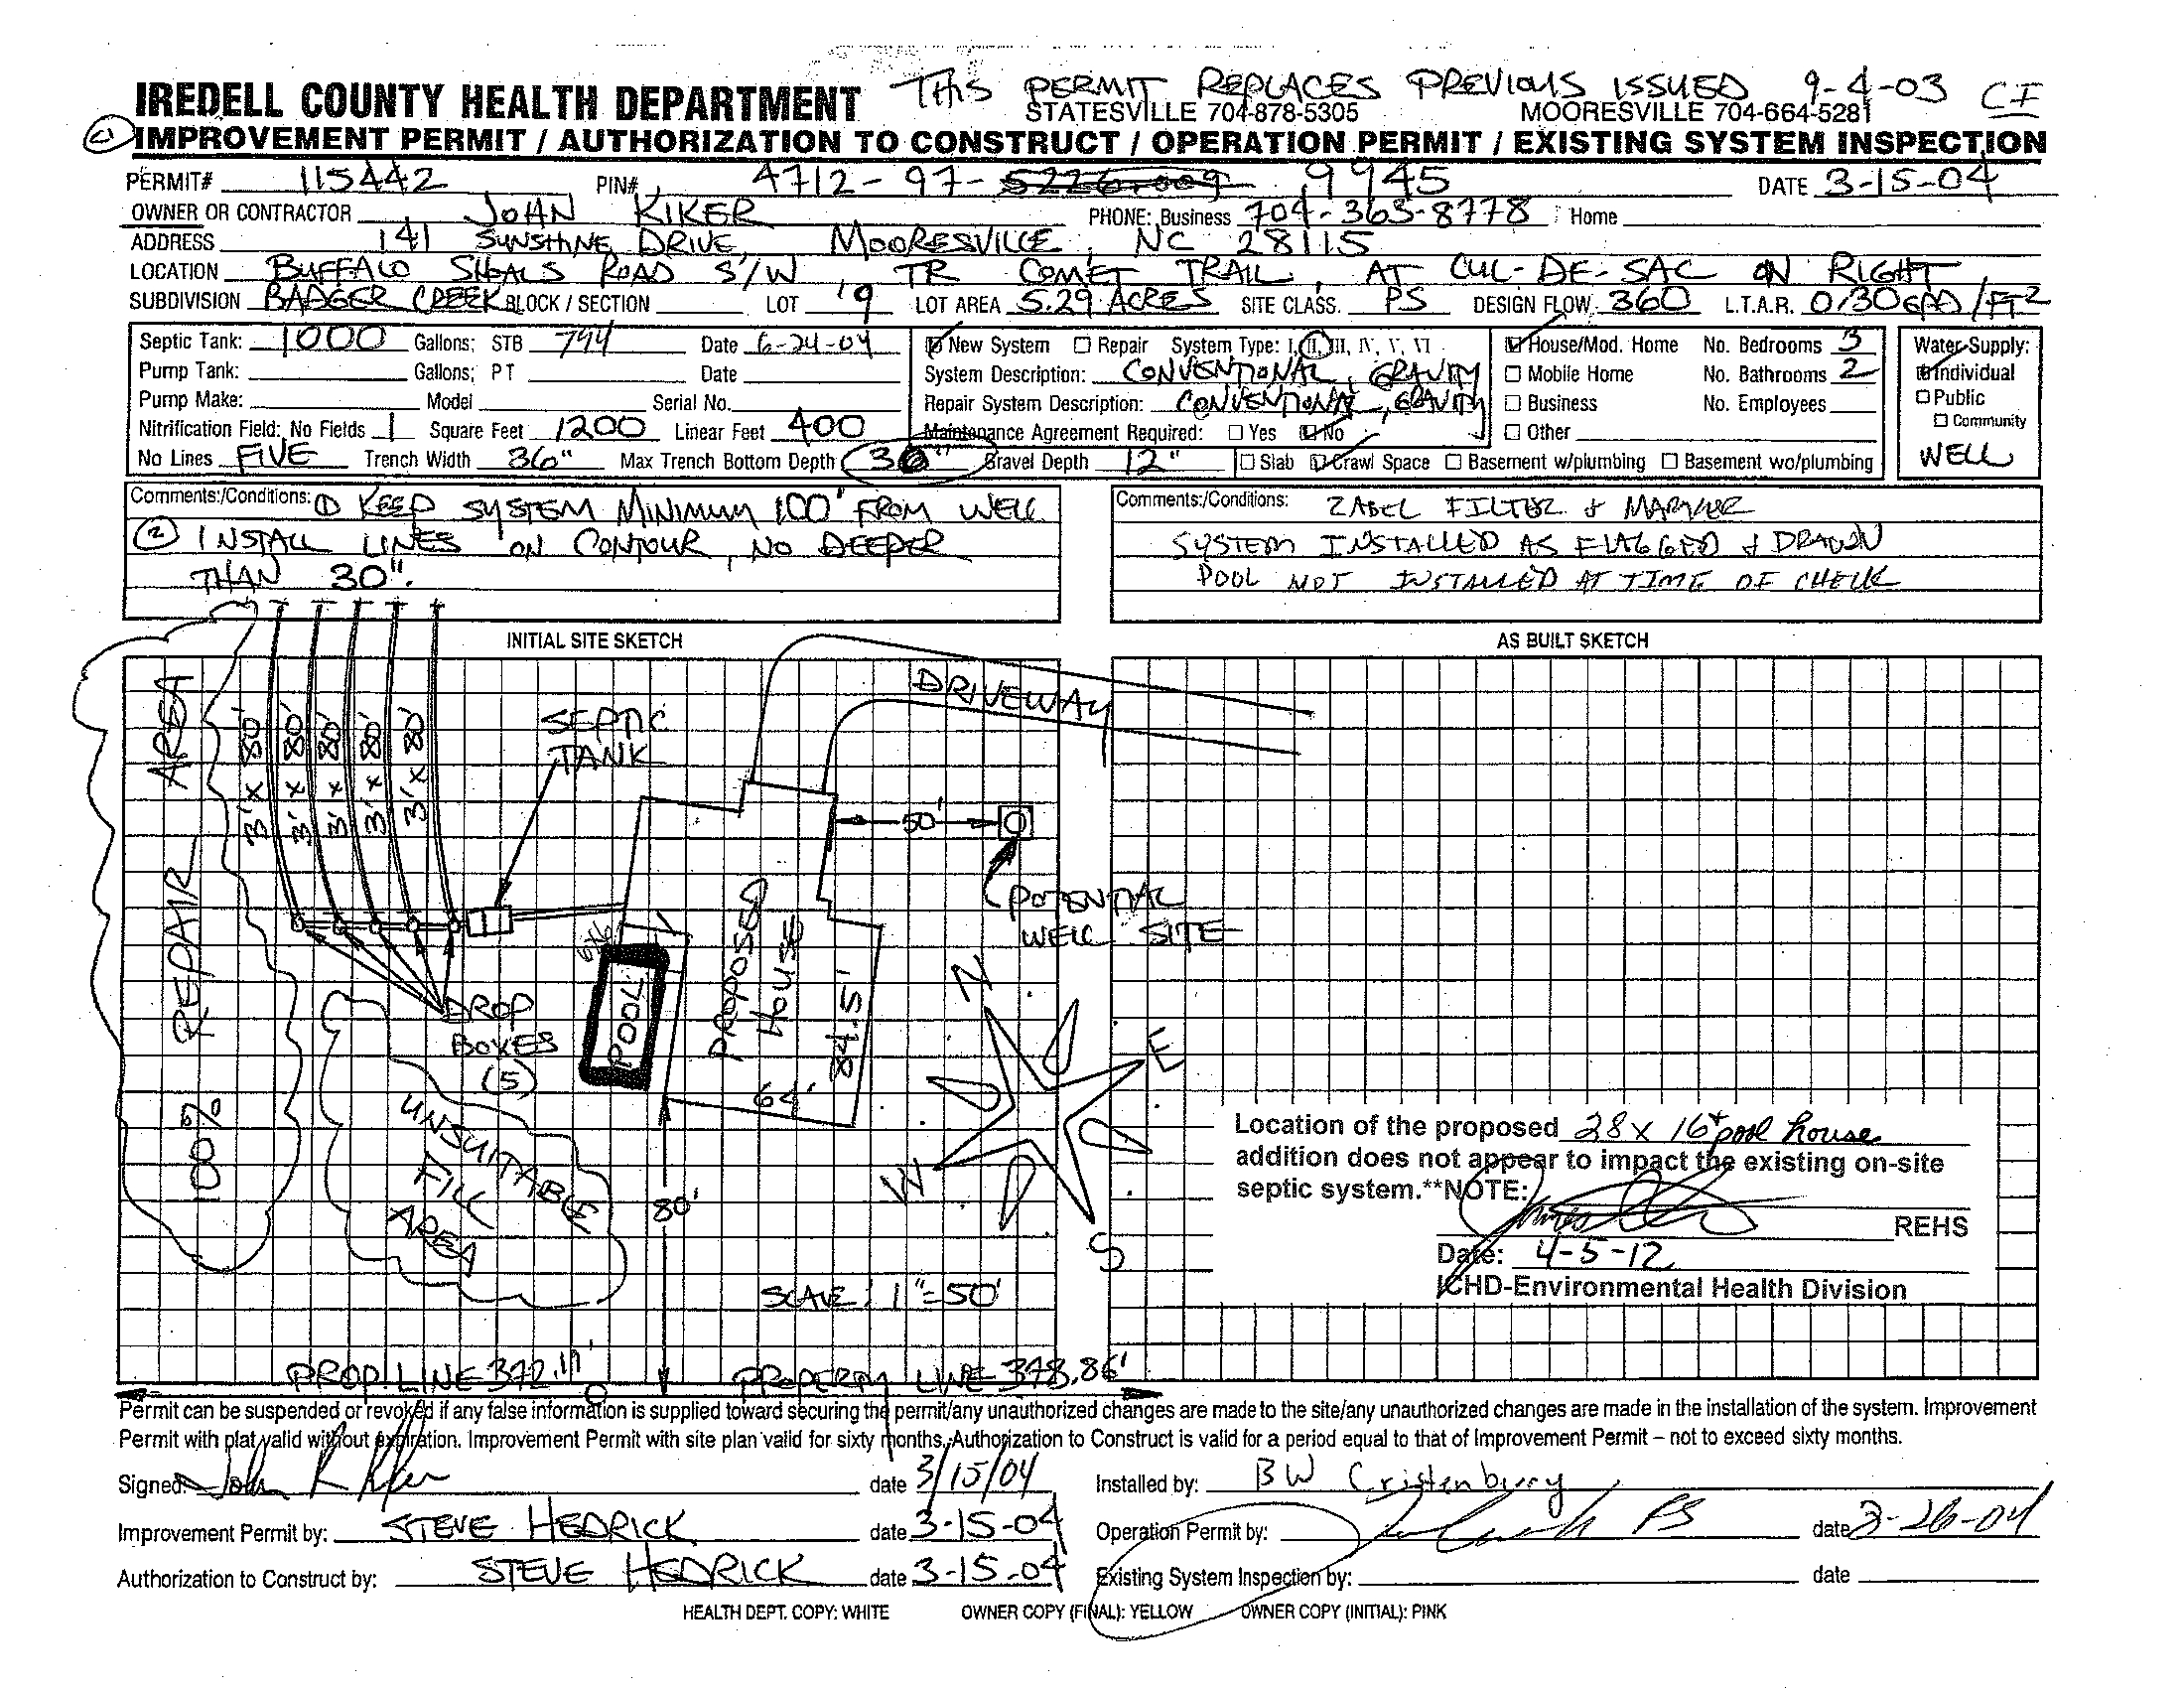 THIS PERMIT REPLACES PREVIOUS ISSUED 9-4-03 CI
IREDELL COUNTY HEALTH DEPARTMENT STATESVILLE 704-878-5305 MOORESVILLE 704-664-5281
IMPROVEMENT PERMIT / AUTHORIZATION TO CONSTRUCT / OPERATION PERMIT / EXISTING SYSTEM INSPECTION
PERMIT# 115442 PIN# 4712-97- 9945 DATE 3-15-04
OWNER OR CONTRACTOR JOHN KIKER PHONE: Business 704-363-8778 Home
ADDRESS 141 SUNSHINE DRIVE, MOORESVILLE, NC 28115
LOCATION BUFFALO SHOALS ROAD S/W, TR COMET TRAIL, AT CUL-DE-SAC ON RIGHT
SUBDIVISION BADGER CREEK BLOCK / SECTION LOT 9 LOT AREA 5.29 ACRES SITE CLASS. PS DESIGN FLOW 360 L.T.A.R. 0.30 GPD/FT2
Septic Tank: 1000 Gallons; STB 794 Date 6-24-04
Pump Tank: Gallons; PT Date
Pump Make: Model Serial No.
Nitrification Field: No Fields 1 Square Feet 1200 Linear Feet 400
No Lines FIVE Trench Width 36" Max Trench Bottom Depth 30" Gravel Depth 12"
New System Repair System Type: I, II, III, IV, V, VI
System Description: CONVENTIONAL, GRAVITY
Repair System Description: CONVENTIONAL, GRAVITY
Maintenance Agreement Required: Yes No
Slab Crawl Space Basement w/plumbing Basement wo/plumbing
House/Mod. Home No. Bedrooms 3
Mobile Home No. Bathrooms 2
Business No. Employees
Other
Water Supply:
Individual
Public
Community
WELL
Comments:/Conditions: ① KEEP SYSTEM MINIMUM 100' FROM WELL
② INSTALL LINES ON CONTOUR, NO DEEPER
THAN 30".
Comments:/Conditions: ZABEL FILTER & MARKER
SYSTEM INSTALLED AS FLAGGED & DRAWN
POOL NOT INSTALLED AT TIME OF CHECK
INITIAL SITE SKETCH
AS BUILT SKETCH
DRIVEWAY
100% REPAIR AREA
3' x 80'
3' x 80'
3' x 80'
3' x 80'
3' x 80'
SEPTIC
TANK
50'
POTENTIAL
WELL SITE
PROPOSED
HOUSE
84.5'
64'
POOL
DROP
BOXES
(5)
UNSUITABLE
FILL
AREA
80'
N
E
W
S
SCALE: 1"=50'
PROP. LINE 372.11'
PROPERTY LINE 378.86'
Location of the proposed 28 x 16 + pool house
addition does not appear to impact the existing on-site
septic system.**NOTE:
REHS
Date: 4-5-12
ICHD-Environmental Health Division
Permit can be suspended or revoked if any false information is supplied toward securing the permit/any unauthorized changes are made to the site/any unauthorized changes are made in the installation of the system. Improvement
Permit with plat valid without expiration. Improvement Permit with site plan valid for sixty months. Authorization to Construct is valid for a period equal to that of Improvement Permit – not to exceed sixty months.
Signed: John R Kiker date 3/15/04 Installed by: BW Cristenberry
Improvement Permit by: STEVE HEDRICK date 3-15-04 Operation Permit by: date
Authorization to Construct by: STEVE HEDRICK date 3-15-04 Existing System Inspection by: date
HEALTH DEPT. COPY: WHITE OWNER COPY (FINAL): YELLOW OWNER COPY (INITIAL): PINK